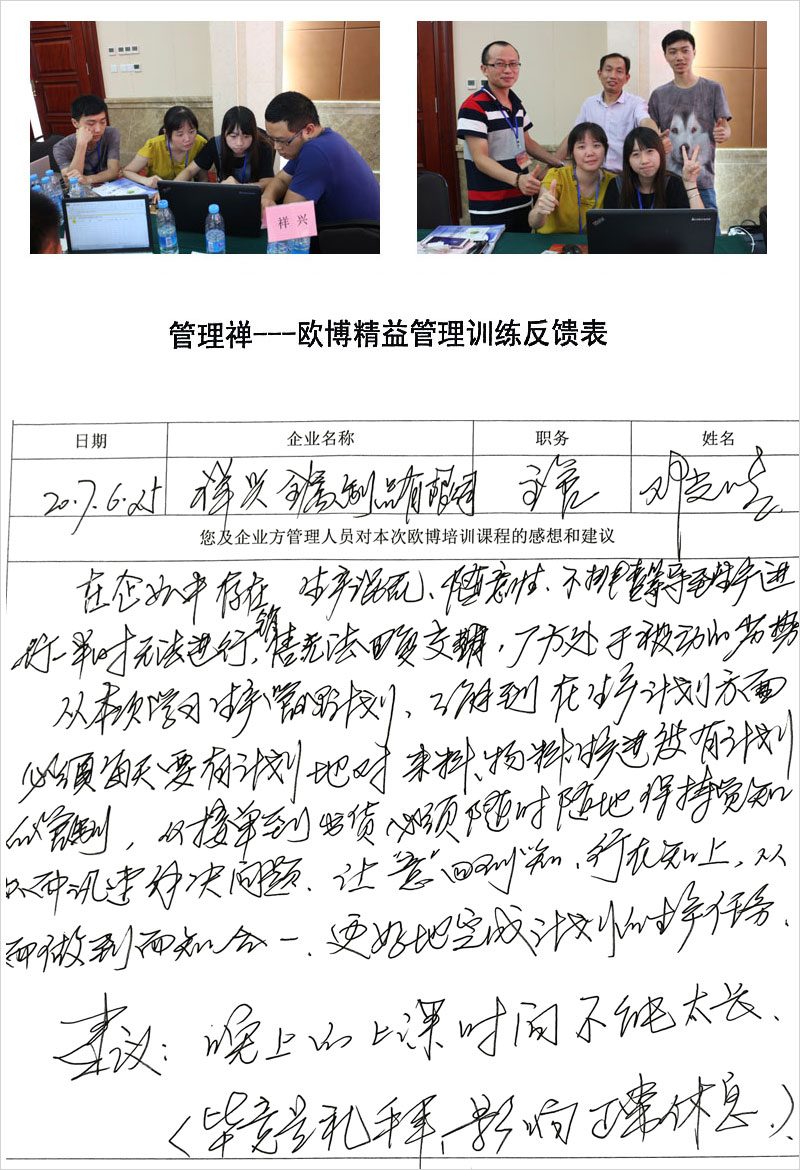 祥 兴
管理禅---欧博精益管理训练反馈表
日期 企业名称 职务 姓名
2017.6.25 祥兴金属制品有限公司 主管 邓
您及企业方管理人员对本次欧博培训课程的感想和建议
在企业中存在 生产混乱、随意性、不 等导致生产进
行一半时无法进行, 销售无法回复交期, 厂方处于被动的劣势
从本次学习生产管理计划, 了解到在生产计划方面
必须每天要有计划地对来料、物料 进 有计划
的 制, 从接单到出货必须随时随地保持觉知
迅速解决问题. 让"意"回到"知, 行在知上, 从
而做到 知合一. 更好地完成计划的生产任务.
建议: 晚上的上课时间不能太长.
(毕竟是礼拜 , 影响正常休息.)